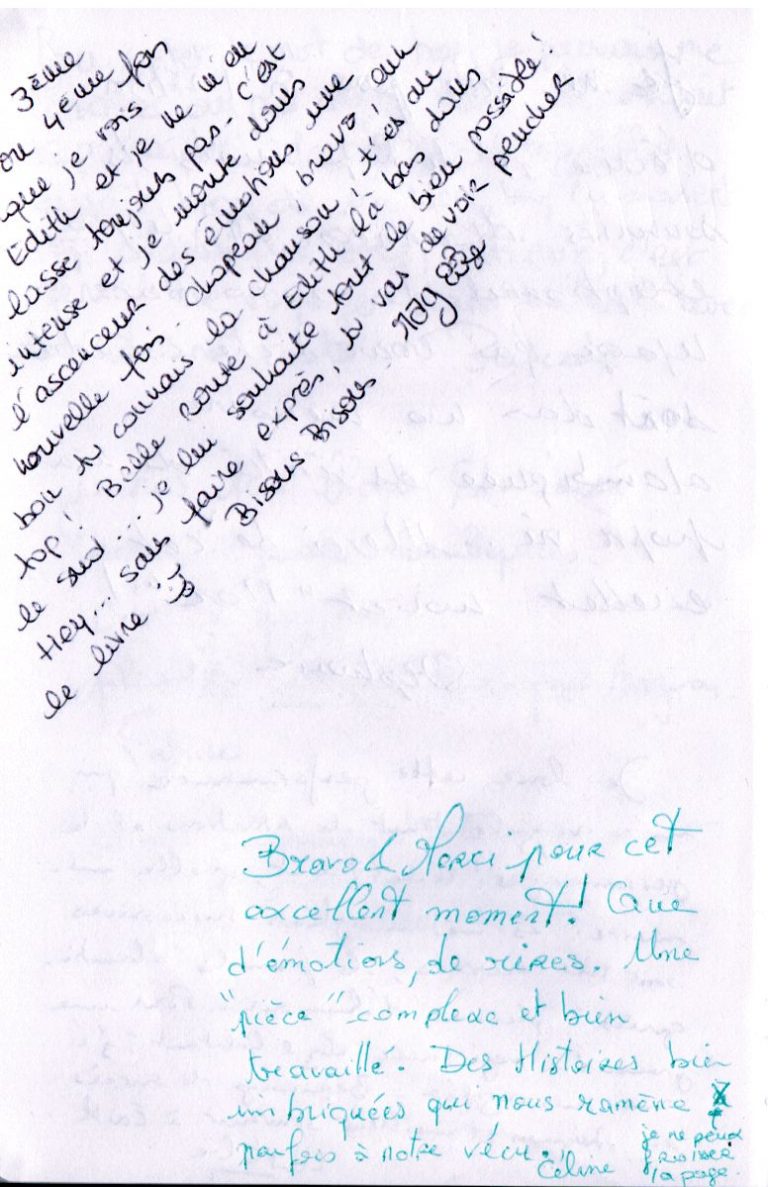 3ème
ou 4ème fois
que je vois
Edith et je ne m'en
lasse toujours pas. C'est
intense et je monte dans
l'ascenceur des émotions une
nouvelle fois. Chapeau bravo, ouh
bon tu connais la chanson, t'es au
top! Belle route à Edith là bas dans
le sud. je lui souhaite tout le bien possible!
Hey... sans faire exprès, tu vas devoir pencher
le livre
Bisous Bisous.
Bravo & Merci pour cet
excellent moment! Que
d'émotions, de rires. Une
"pièce" complexe et bien
travaille. Des Histoires bien
imbriquées qui nous ramène
parfois à notre vécu.
Céline
je ne peux
froisser
la page.